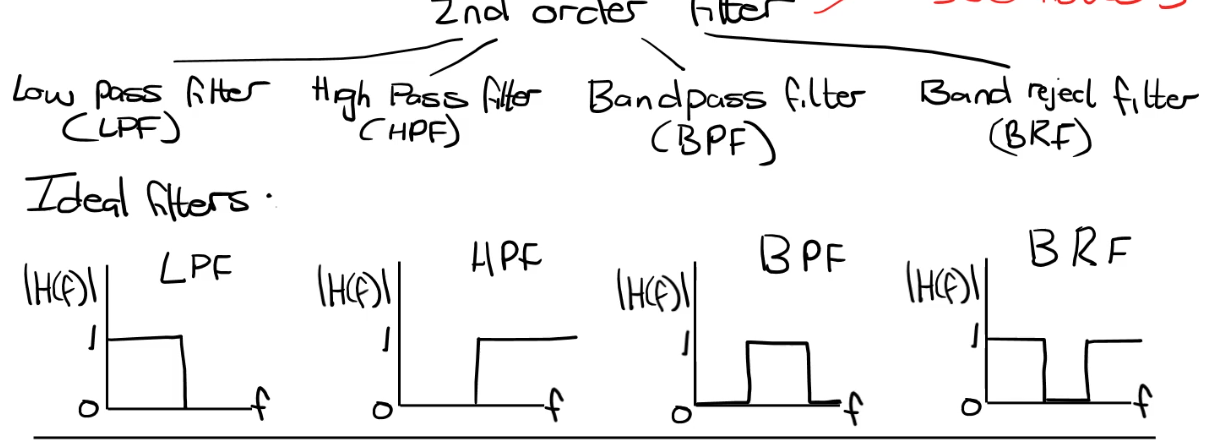 2nd order filter
Low pass filter
(LPF)
High Pass filter
(HPF)
Bandpass filter
(BPF)
Band reject filter
(BRF)
Ideal filters.
LPF
|H(f)|
1
0
f
HPF
|H(f)|
1
0
f
BPF
|H(f)|
1
0
f
BRF
|H(f)|
1
0
f